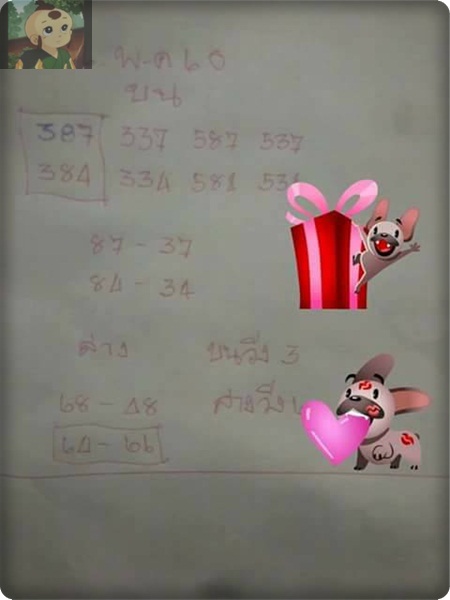 พ.ค 60
บน
387 337 587 537
384 334 581 531
87 - 37
84 - 34
ล่าง บนวิ่ง 3
68 - 48 ล่างวิ่ง 6
64 - 66